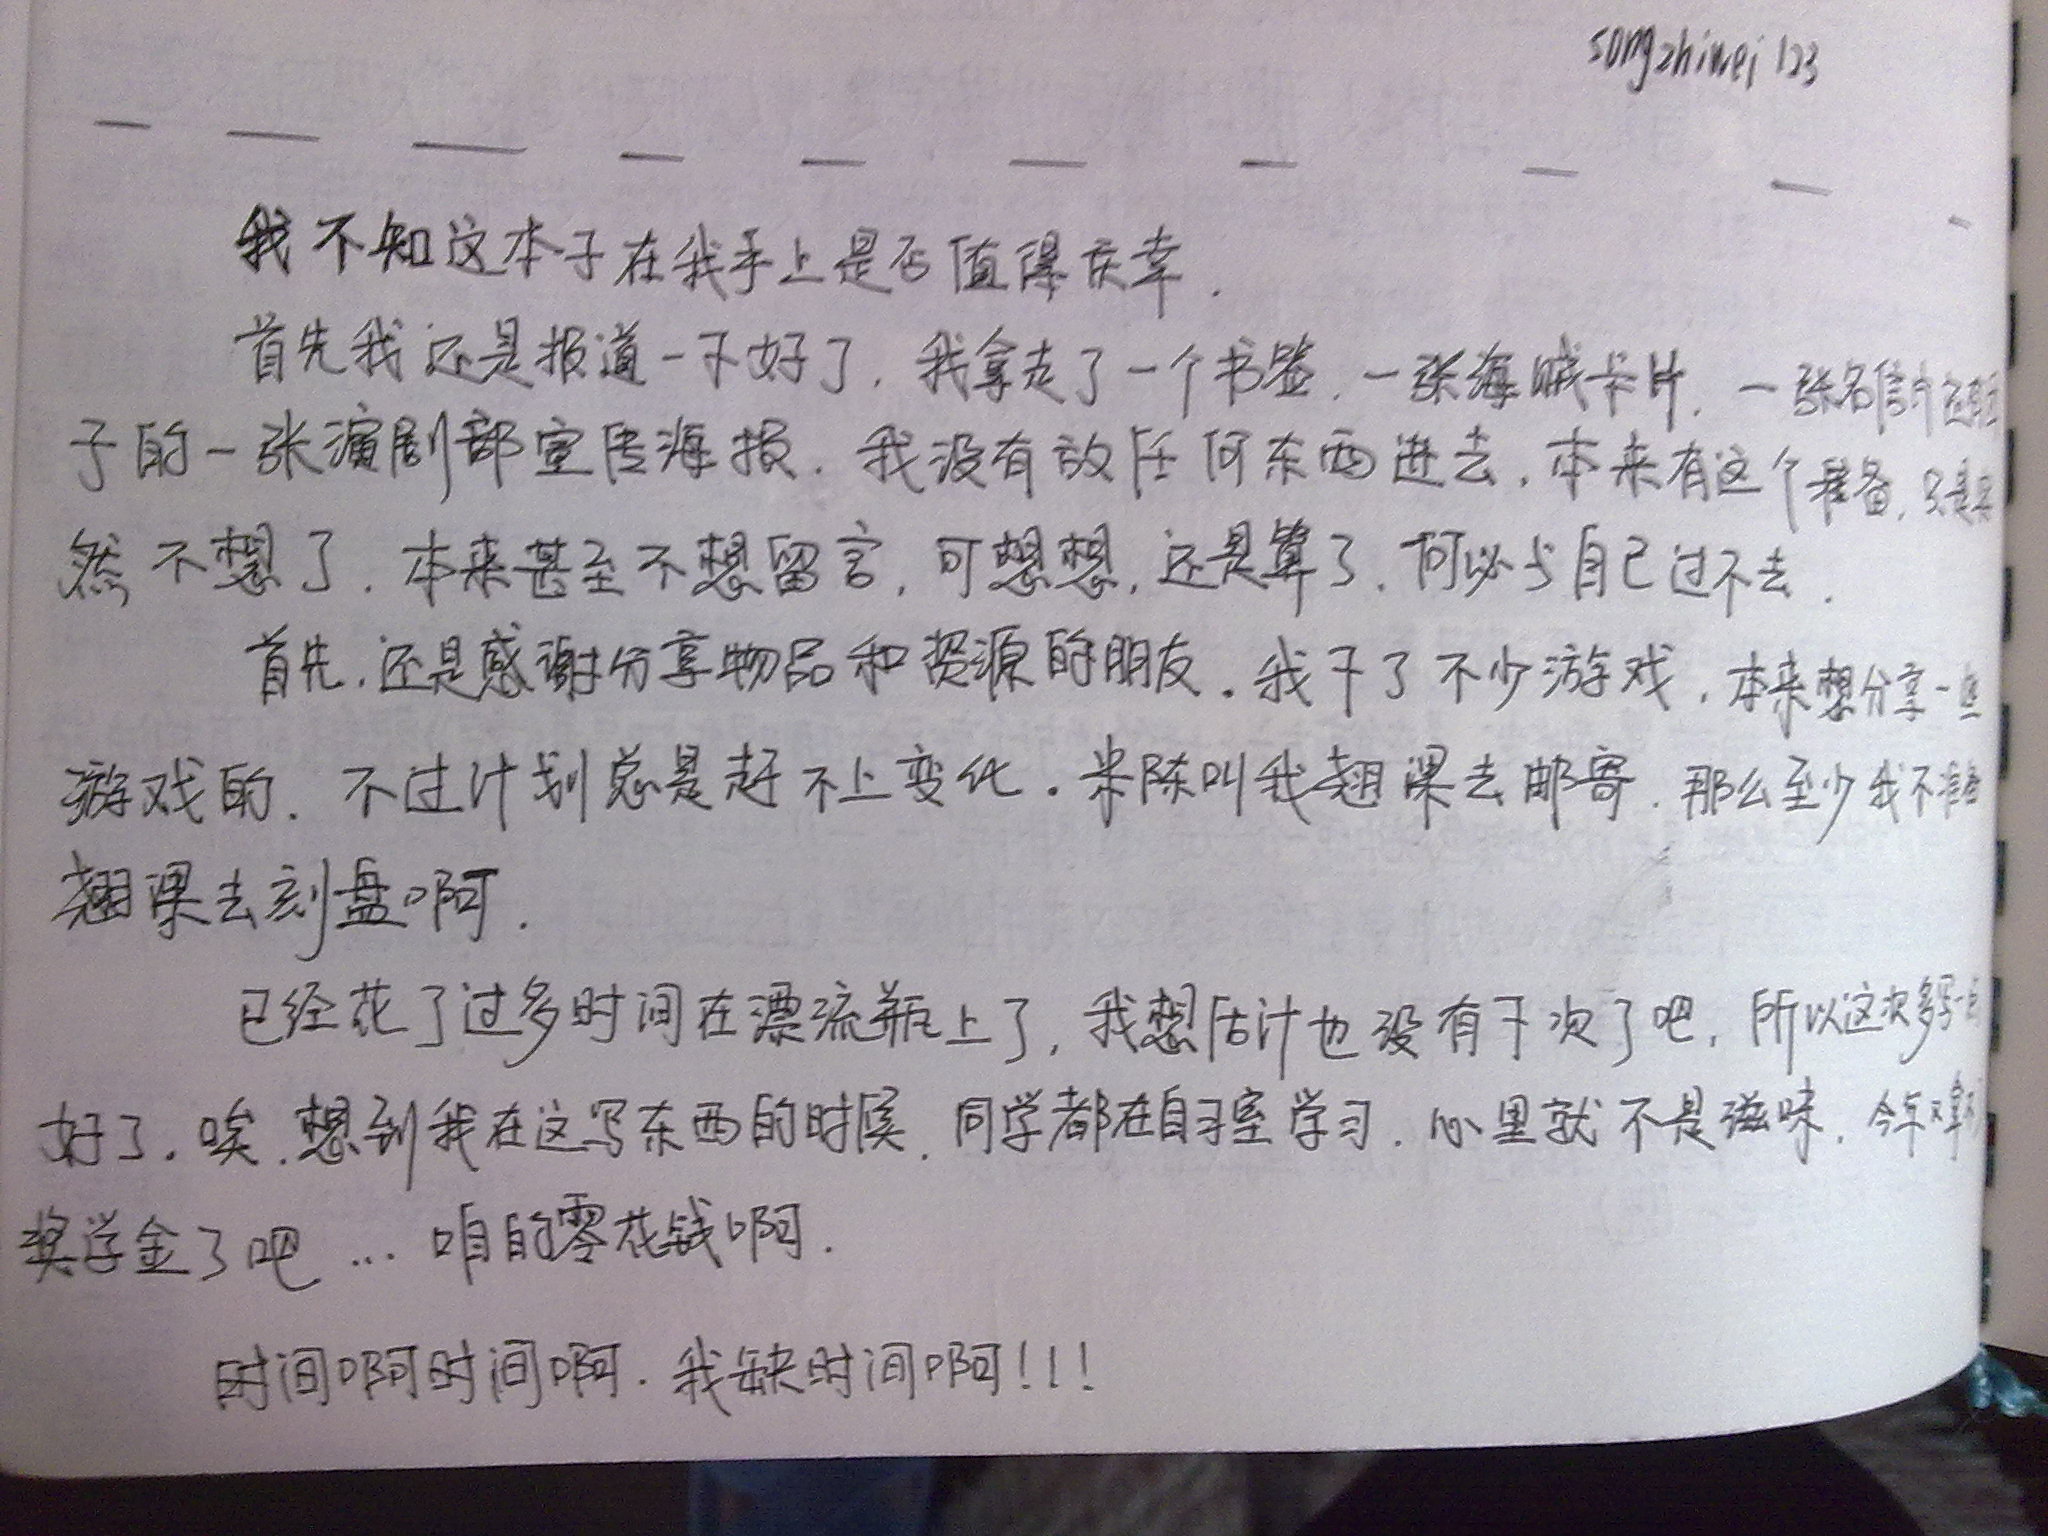 songzhiwei 123
我不知这本子在我手上是否值得庆幸.
首先我还是报道一下好了.我拿走了一个书签,一张海贼卡片,一张名信片还有
子的一张演剧部宣传海报.我没有放任何东西进去,本来有这个准备,只是突
然不想了.本来甚至不想留言,可想想,还是算了,何必与自己过不去.
首先,还是感谢分享物品和资源的朋友。我下了不少游戏,本来想分享一些
游戏的.不过计划总是赶不上变化。米陈叫我翘课去邮寄.那么至少我不准备
翘课去刻盘啊.
已经花了过多时间在漂流瓶上了,我想估计也没有下次了吧,所以这次多写一点
好了.唉.想到我在这写东西的时候,同学都在自习室学习.心里就不是滋味.今年又拿不
奖学金了吧…咱的零花钱啊.
时间啊时间啊.我缺时间啊!!!